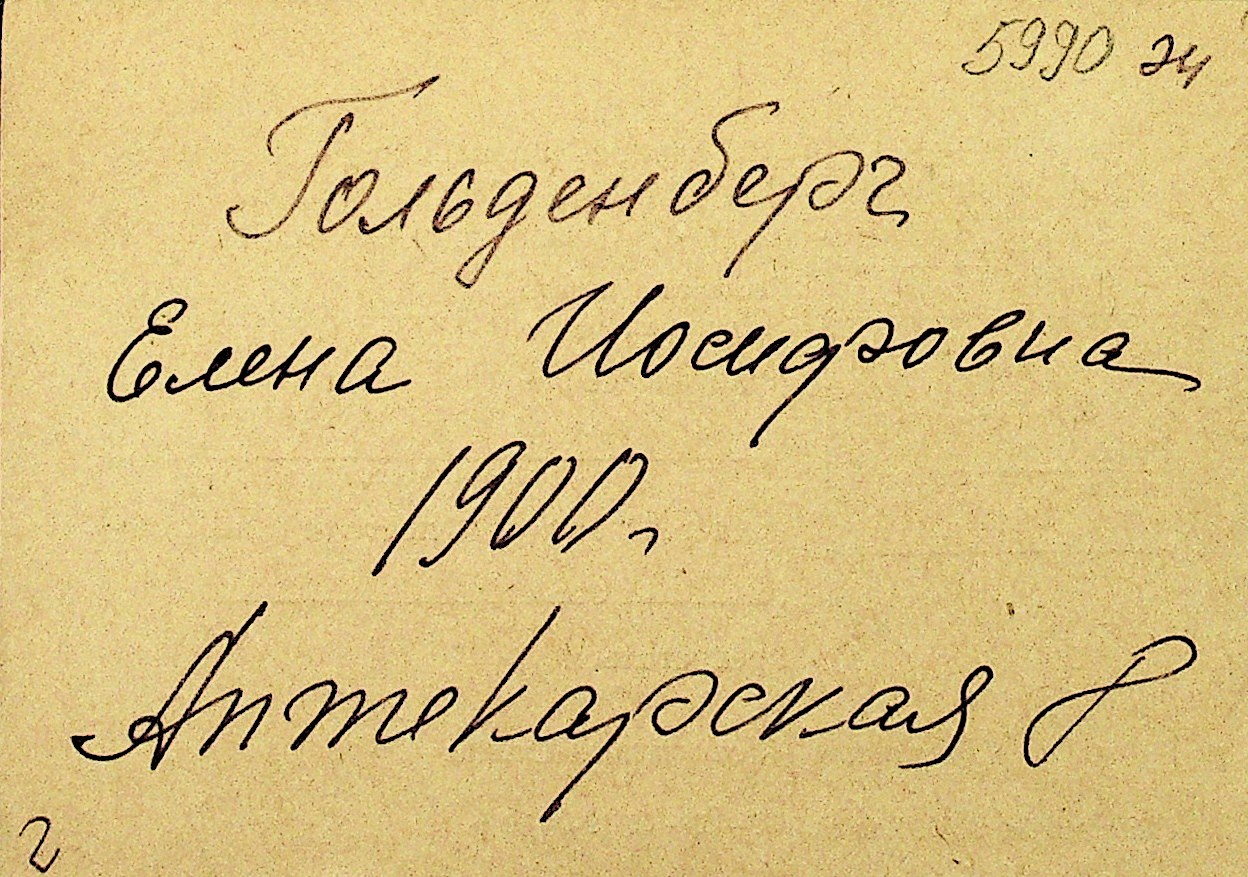 5990 эч
Гольденберг
Елена Иосифовна
1900г
Аптекарская 8
г